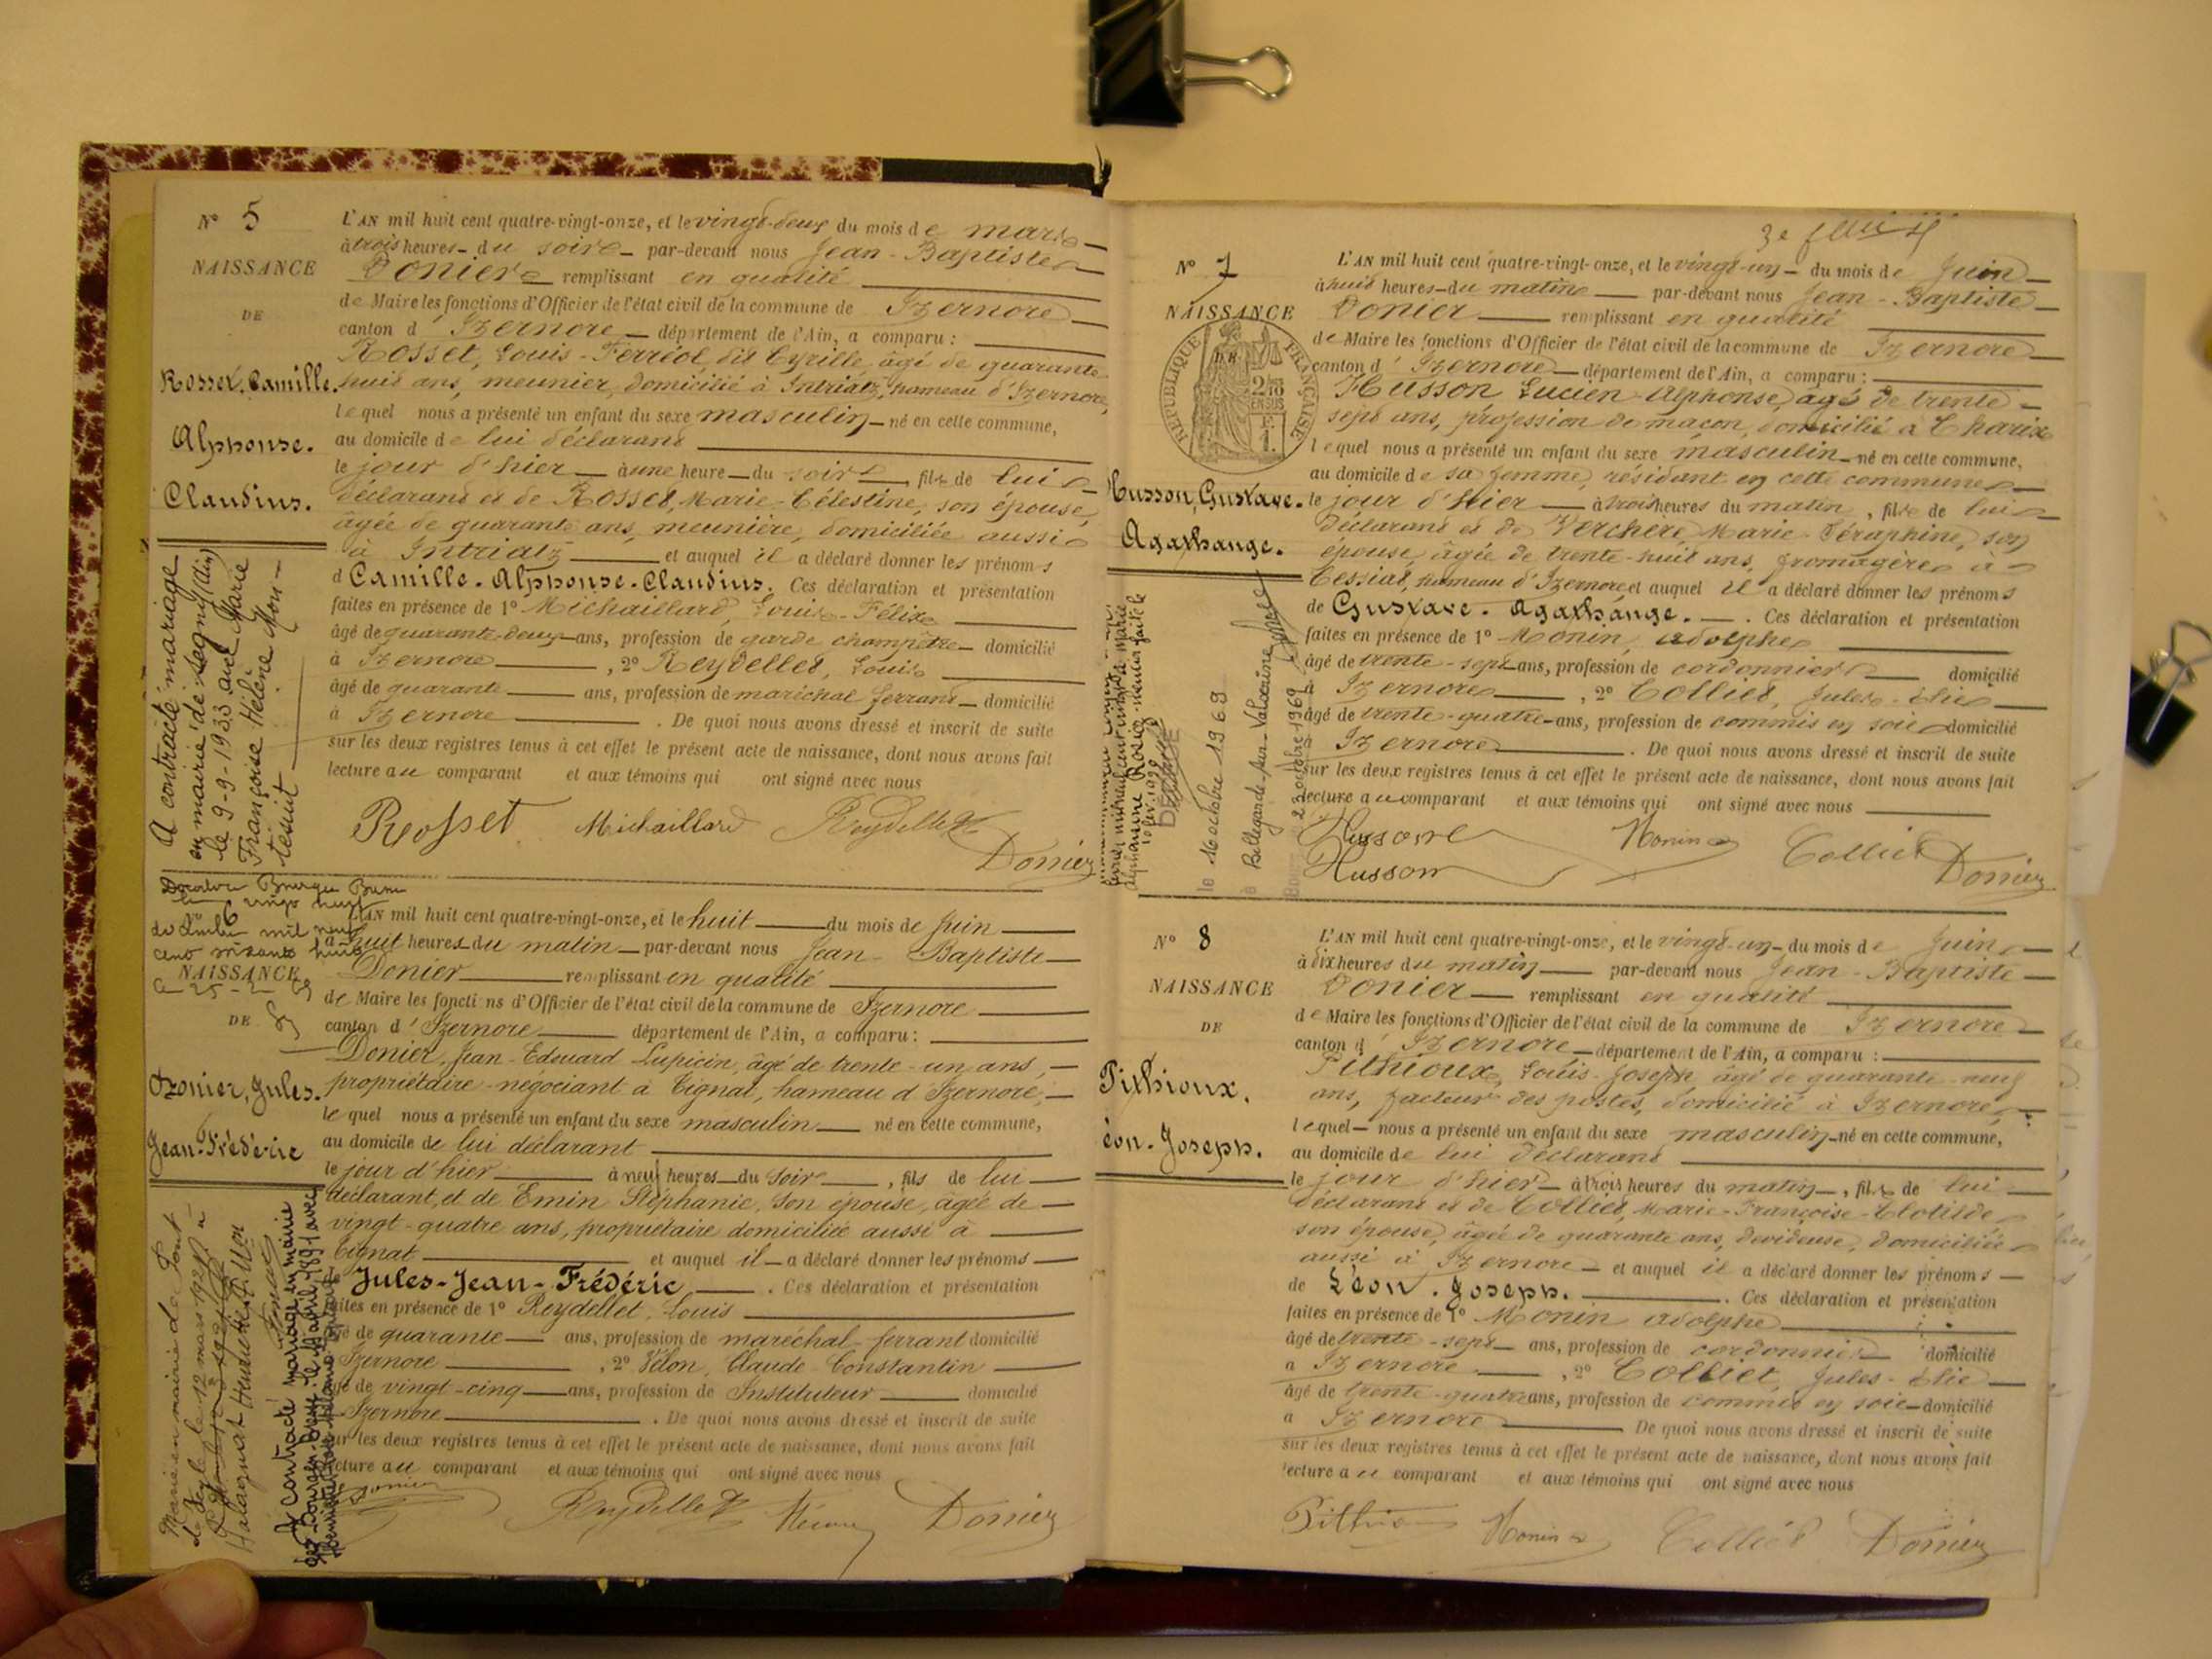 N° 5
NAISSANCE
DE
Rosset, Camille.
Alphonse.
Claudius.
L'AN mil huit cent quatre-vingt-onze, et le vingt-deux du mois de mars
à trois heures du soir par-devant nous Jean-Baptiste
Donier remplissant en qualité
de Maire les fonctions d'Officier de l'état civil de la commune de Izernore
canton d'Izernore département de l'Ain, a comparu :
Rosset, Louis-Ferréol, dit Cyrille, âgé de quarante
huit ans, meunier, domicilié à Intriatz, hameau d'Izernore,
lequel nous a présenté un enfant du sexe masculin né en cette commune,
au domicile de lui déclarant
le jour d'hier à une heure du soir, fils de lui
déclarant et de Rosset, Marie-Célestine, son épouse,
âgée de quarante ans, meunière, domiciliée aussi
à Intriatz et auquel il a déclaré donner les prénoms
d Camille-Alphonse-Claudius. Ces déclaration et présentation
faites en présence de 1° Michaillard, Louis-Félix
âgé de quarante-deux ans, profession de garde champêtre domicilié
à Izernore, 2° Reydellet, Louis
âgé de quarante ans, profession de maréchal ferrant domicilié
à Izernore. De quoi nous avons dressé et inscrit de suite
sur les deux registres tenus à cet effet le présent acte de naissance, dont nous avons fait
lecture au comparant et aux témoins qui ont signé avec nous
Rosset Michaillard Reydellet
Donier
A contracté mariage
en mairie de Segny (Ain)
le 9-9-1933 avec Marie
Françoise Hélène Mou-
tesuit
N° 6
NAISSANCE
DE
Donier, Jules.
Jean-Frédéric
L'AN mil huit cent quatre-vingt-onze, et le huit du mois de Juin
à huit heures du matin par-devant nous Jean-Baptiste
Donier remplissant en qualité
de Maire les fonctions d'Officier de l'état civil de la commune de Izernore
canton d'Izernore département de l'Ain, a comparu :
Donier, Jean-Edouard-Lupicin, âgé de trente-un ans,
propriétaire-négociant à Tignat, hameau d'Izernore,
lequel nous a présenté un enfant du sexe masculin né en cette commune,
au domicile de lui déclarant
le jour d'hier à neuf heures du soir, fils de lui
déclarant, et de Emin Stéphanie, son épouse, âgée de
vingt-quatre ans, propriétaire domiciliée aussi à
Tignat et auquel il a déclaré donner les prénoms
Jules-Jean-Frédéric. Ces déclaration et présentation
faites en présence de 1° Reydellet, Louis
âgé de quarante ans, profession de maréchal-ferrant domicilié
Izernore, 2° Vélon, Claude Constantin
âgé de vingt-cinq ans, profession de Instituteur domicilié
Izernore. De quoi nous avons dressé et inscrit de suite
sur les deux registres tenus à cet effet le présent acte de naissance, dont nous avons fait
lecture au comparant et aux témoins qui ont signé avec nous
Donier Reydellet Donier
3e feuille
N° 7
NAISSANCE
DE
RÉPUBLIQUE FRANÇAISE
Husson, Gustave.
Agathange.
L'AN mil huit cent quatre-vingt-onze, et le vingt-un du mois de Juin
à huit heures du matin par-devant nous Jean-Baptiste
Donier remplissant en qualité
de Maire les fonctions d'Officier de l'état civil de la commune de Izernore
canton d'Izernore département de l'Ain, a comparu :
Husson Lucien-Alphonse, âgé de trente
sept ans, profession de maçon, domicilié à Charix
lequel nous a présenté un enfant du sexe masculin né en cette commune,
au domicile de sa femme, résidant en cette commune
le jour d'hier à trois heures du matin, fils de lui
déclarant et de Verchère, Marie-Séraphine, son
épouse, âgée de trente-huit ans, fromagère à
Cessiat, hameau d'Izernore et auquel il a déclaré donner les prénoms
de Gustave-Agathange. Ces déclaration et présentation
faites en présence de 1° Monin, adolphe
âgé de trente-sept ans, profession de cordonnier domicilié
à Izernore, 2° Colliet, Jules-Elie
âgé de trente-quatre ans, profession de commis en soie domicilié
à Izernore. De quoi nous avons dressé et inscrit de suite
sur les deux registres tenus à cet effet le présent acte de naissance, dont nous avons fait
lecture au comparant et aux témoins qui ont signé avec nous
Husson Monin Colliet Donier
Husson
le 16 octobre 1969
à Bellegarde-sur-Valserine
N° 8
NAISSANCE
DE
Pithioux.
éon-Joseph.
L'AN mil huit cent quatre-vingt-onze, et le vingt-un du mois de Juin
à dix heures du matin par-devant nous Jean-Baptiste
Donier remplissant en qualité
de Maire les fonctions d'Officier de l'état civil de la commune de Izernore
canton d'Izernore département de l'Ain, a comparu :
Pithioux, Louis-Joseph âgé de quarante-neuf
ans, facteur des postes, domicilié à Izernore,
lequel nous a présenté un enfant du sexe masculin né en cette commune,
au domicile de lui déclarant
le jour d'hier à trois heures du matin, fils de lui
déclarant et de Colliet, Marie-Françoise-Clotilde
son épouse, âgée de quarante ans, dévideuse, domiciliée
aussi à Izernore et auquel il a déclaré donner les prénoms
de Léon-Joseph. Ces déclaration et présentation
faites en présence de 1° Monin adolphe
âgé de trente-sept ans, profession de cordonnier domicilié
à Izernore, 2° Colliet, Jules-Elie
âgé de trente-quatre ans, profession de commis en soie domicilié
à Izernore De quoi nous avons dressé et inscrit de suite
sur les deux registres tenus à cet effet le présent acte de naissance, dont nous avons fait
lecture au comparant et aux témoins qui ont signé avec nous
Pithioux Monin Colliet Donier